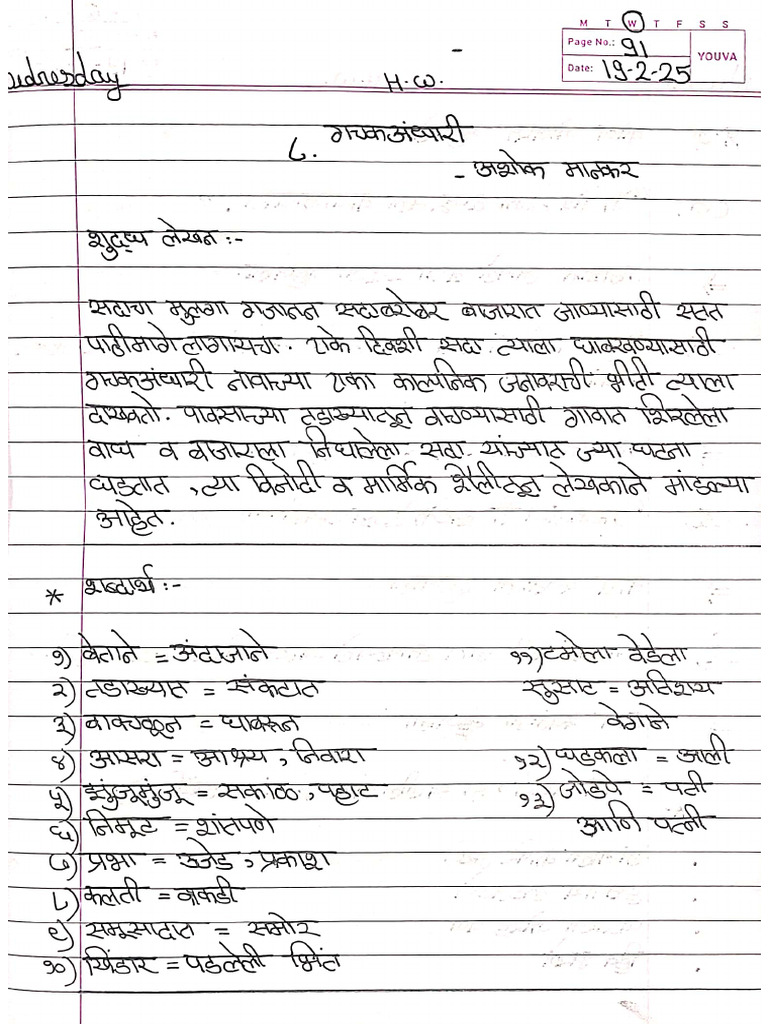 M T W T F S S
Page No.: 91
Date: 19-2-25
YOUVA
H.W.
८. गचकअंधारी
- अशोक मानकर
शुद्ध लेखन :-
सदाचा मुलगा गजानन सदाबरोबर बाजारात जाण्यासाठी सतत
पाठीमागे लागायचा. एके दिवशी सदा त्याला घाबरवण्यासाठी
गचकअंधारी नावाच्या एका काल्पनिक जनावराची भीती त्याला
दाखवतो. पावसाच्या तडाख्यातून वाचण्यासाठी गावात शिरलेला
वाघ व बाजाराला निघालेला सदा यांच्यात ज्या घटना
घडतात, त्या विनोदी व मार्मिक शैलीतून लेखकाने मांडल्या
आहेत.
* शब्दार्थ :-
१) बेताने = अंदाजाने
२) तडाख्यात = संकटात
३) बाकचळून = घाबरून
४) आसरा = आश्रय, निवारा
५) झुंजूमुंजू = सकाळ, पहाट
६) निमूट = शांतपणे
७) प्रभा = उजेड, प्रकाश
८) कलती = वाकडी
९) समूसादात = समोर
१०) खिंडार = पडलेली भिंत
११) टमोला वेडेला
सुसाट = अतिशय
वेगाने
१२) धडकला = आली
१३) जोडपे = पती
आनि पत्नी